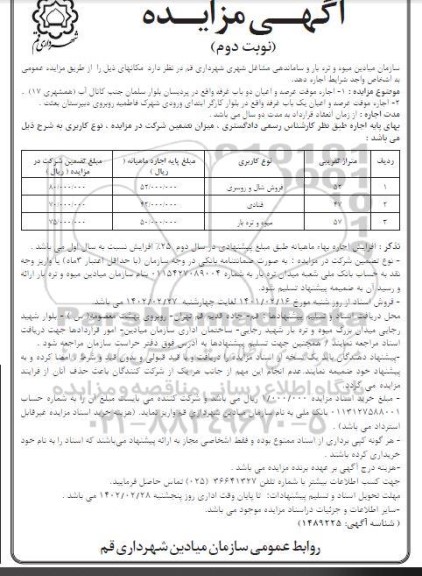 آگهی مزایده
(نوبت دوم)
شهرداری قم
سازمان میادین میوه و تره بار و ساماندهی مشاغل شهری شهرداری قم در نظر دارد مکانهای ذیل را از طریق مزایده عمومی
به اشخاص واجد شرایط اجاره دهد.
موضوع مزایده : ۱- اجاره موقت عرصه و اعیان دو باب غرفه واقع در پردیسان بلوار سلمان جنب کانال آب (همشهری ۱۷) .
۲- اجاره موقت عرصه و اعیان یک باب غرفه واقع در بلوار کارگر ابتدای ورودی شهرک فاطمیه روبروی دبیرستان بعثت .
مدت اجاره : از زمان انعقاد قرارداد به مدت دو سال می باشد .
بهای پایه اجاره طبق نظر کارشناس رسمی دادگستری ، میزان تضمین شرکت در مزایده ، نوع کاربری به شرح ذیل
می باشد :
ردیف متراژ تقریبی نوع کاربری مبلغ پایه اجاره ماهیانه ( ریال ) مبلغ تضمین شرکت در مزایده ( ریال )
۱ ۵۲ فروش شال و روسری ۵۲/۰۰۰/۰۰۰ ۸۰/۰۰۰/۰۰۰
۲ ۴۷ قنادی ۴۲/۰۰۰/۰۰۰ ۷۰/۰۰۰/۰۰۰
۳ ۵۷ میوه و تره بار ۵۰/۰۰۰/۰۰۰ ۷۵/۰۰۰/۰۰۰
تذکر : افزایش اجاره بهاء ماهیانه طبق مبلغ پیشنهادی در سال دوم ۲۵٪ افزایش نسبت به سال اول می باشد .
- نوع تضمین شرکت در مزایده : به صورت ضمانتنامه بانکی در وجه سازمان (با حداقل اعتبار ۳ماه) یا واریز وجه
نقد به حساب بانک ملی شعبه میدان تره بار به شماره ۰۱۱۵۴۲۷۰۸۹۰۰۴ بنام سازمان میادین میوه و تره بار ارائه
و رسید آن به ضمیمه پیشنهاد تسلیم شود.
- فروش اسناد از روز شنبه مورخ ۱۴۰۲/۰۲/۱۶ لغایت چهارشنبه ۱۴۰۲/۰۲/۲۷ می باشد.
محل دریافت اسناد و تسلیم پیشنهادها: قم- جاده قدیم قم تهران- روبروی بهشت معصومه(س) - بلوار شهید
رجایی میدان بزرگ میوه و تره بار شهید رجایی- ساختمان اداری سازمان میادین- امور قراردادها جهت دریافت
اسناد مراجعه نمایند / همچنین جهت تسلیم پیشنهادها به آدرس فوق دفتر حراست سازمان مراجعه شود .
-پیشنهاد دهندگان باید یک نسخه از اسناد مزایده را دریافت و با قید قبولی و بدون قید و شرط امضا کرده و به
پیشنهاد خود ضمیمه نمایند.عدم انجام این مهم از جانب هر یک از شرکت کنندگان باعث حذف آنان از فرایند
مزایده می گردد.
- مبلغ خرید اسناد مزایده ۱/۰۰۰/۰۰۰ ریال می باشد و شرکت کننده می بایست مبلغ آن را به شماره حساب
۰۱۱۳۱۲۷۵۸۸۰۰۱ بانک ملی به نام سازمان میادین شهرداری قم واریز نماید. (هزینه خرید اسناد مزایده غیرقابل
استرداد می باشد) .
- هر گونه کپی برداری از اسناد ممنوع بوده و فقط اشخاصی مجاز به ارائه پیشنهاد می‌باشند که اسناد را به نام خود
خریداری کرده باشند .
-هزینه درج آگهی بر عهده برنده مزایده می باشد .
جهت کسب اطلاعات بیشتر با شماره تلفن ۳۶۶۴۱۳۲۷ (۰۲۵) تماس حاصل فرمایید.
مهلت تحویل اسناد و تسلیم پیشنهادات: تا پایان وقت اداری روز پنجشنبه ۱۴۰۲/۰۲/۲۸ می باشد .
-سایر اطلاعات و جزئیات دراسناد مزایده موجود می باشد.
( شناسه آگهی: ۱۴۸۹۲۲۵ )
روابط عمومی سازمان میادین شهرداری قم
پایگاه اطلاع رسانی مناقصه و مزایده
۰۲۱-۸۸۳۴۹۶۷۰-۵